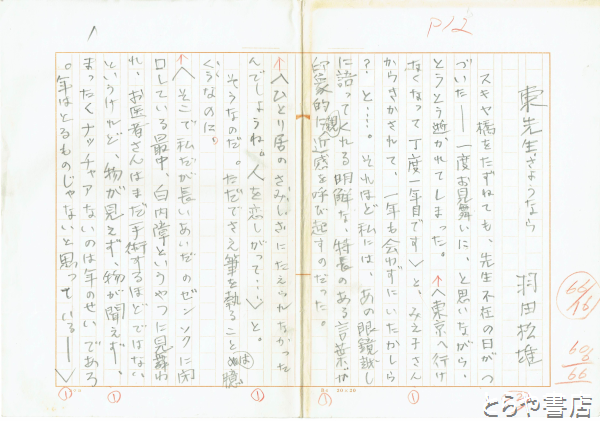 P12
東先生さようなら
羽田松雄
スキヤ橋をたずねても、先生不在の日がつ
づいた――一度お見舞いに、と思いながら、
とうとう逝かれてしまった。へ東京へ行け
なくなって丁度一年目です〉と、みえ子さん
からきかされて、一年も会わずにいたかしら
？と…。それほど私には、あの眼鏡越し
に語ってくれる明解な、特長のある言葉が
印象的で親近感を呼び起すのだった。
〈ひとり居のさみしさにたえられなかった
んでしょうね。人を恋しがって…〉と。
そうなのだ。ただでさえ筆を執ること
なのに。
〈そこで私だが長いあいだのゼンソクに閉
口している最中、白内障というやつに見舞わ
れ、お医者さんはまだ手術するほどではない
というけれど、物が見えず、物が聞えず、
まったくナッチャアないのは年のせいであろ
。年はとるものじゃないと思っている――〉
20×20
とらや書店